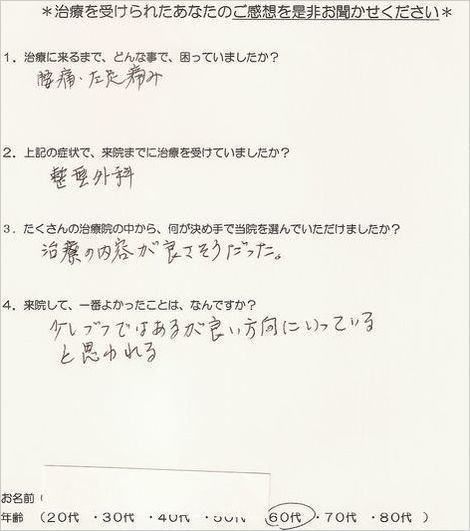 ＊治療を受けられたあなたのご感想を是非お聞かせください＊
１．治療に来るまで、どんな事で、困っていましたか？
腰痛・左足痛み
２．上記の症状で、来院までに治療を受けていましたか？
整形外科
３．たくさんの治療院の中から、何が決め手で当院を選んでいただけましたか？
治療の内容が良さそうだった。
４．来院して、一番よかったことは、なんですか？
少しづつではあるが良い方向にいっている
と思われる
お名前（
年齢　（20代　・30代　・40代　・50代　・60代　・70代　・80代　）